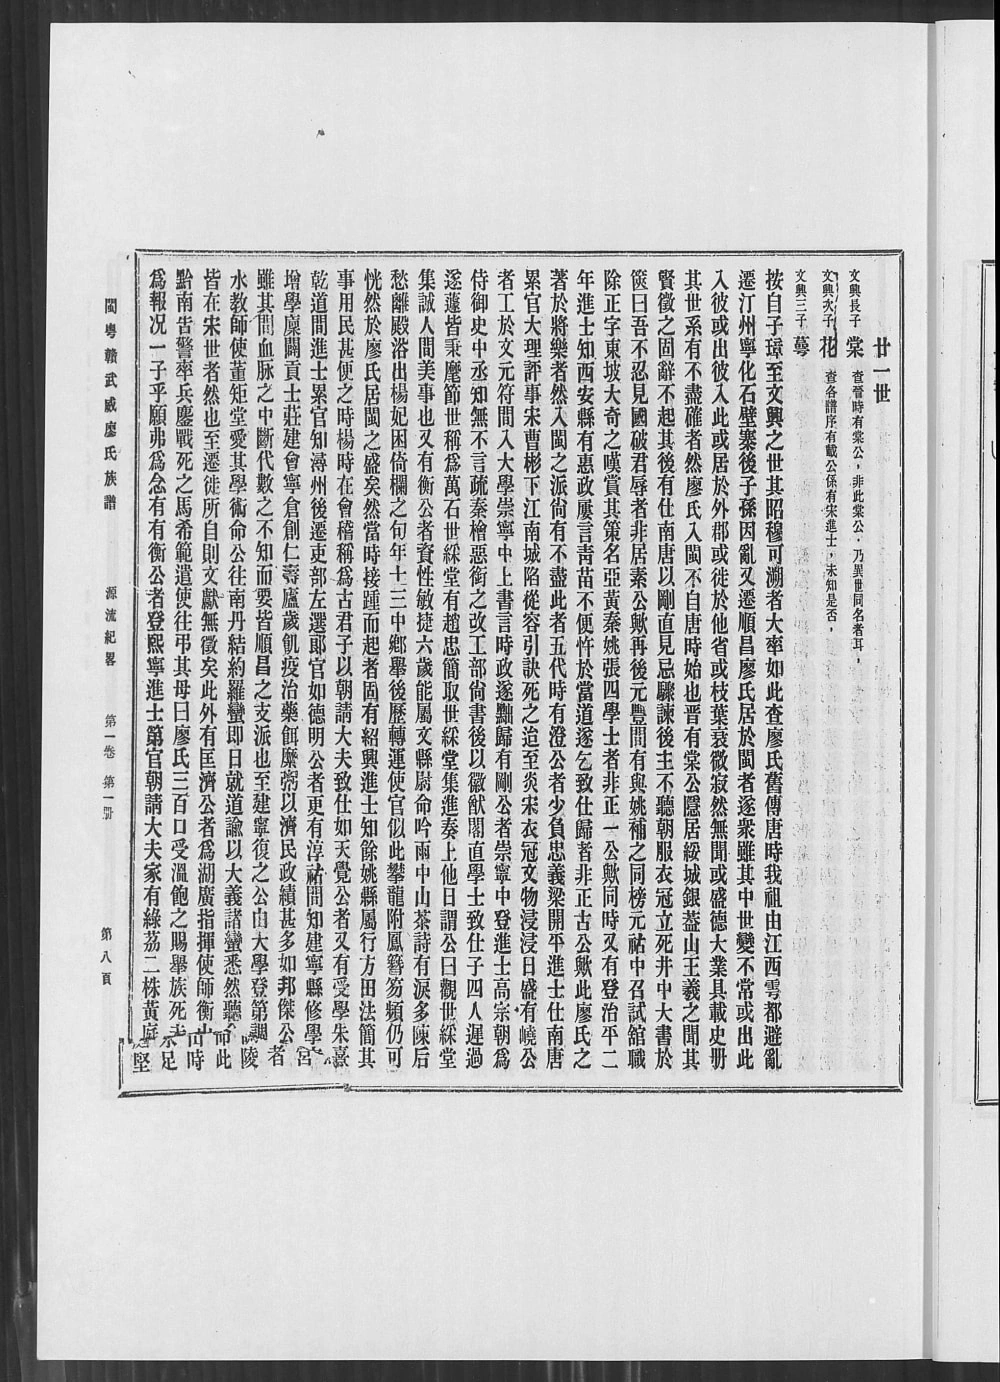 廿一世
文興長子 棠 查晉時有棠公，非此棠公，乃異世同名者耳，
文興次子 花 查各譜序有載公係有宋進士，未知是否，
文興三子 蕚
按自子璋至文興之世其昭穆可溯者大率如此查廖氏舊傳唐時我祖由江西雩都避亂
遷汀州寧化石壁寨後子孫因亂又遷順昌廖氏居於閩者遂衆雖其中世變不常或出此
入彼或出彼入此或居於外郡或徙於他省或枝葉衰微寂然無聞或盛德大業具載史册
其世系有不盡確者然廖氏入閩不自唐時始也晉有棠公隱居綏城銀葢山王羲之聞其
賢徵之固辭不起其後有仕南唐以剛直見忌驟諫後主不聽朝服衣冠立死井中大書於
篋曰吾不忍見國破君辱者非居素公歟再後元豐間有與姚補之同榜元祐中召試舘職
除正字東坡大奇之嘆賞其策名亞黃秦姚張四學士者非正一公歟同時又有登治平二
年進士知西安縣有惠政屢言靑苗不便忤於當道遂乞致仕歸者非正古公歟此廖氏之
著於將樂者然入閩之派尙有不盡此者五代時有澄公者少負忠義梁開平進士仕南唐
累官大理評事宋曹彬下江南城陷從容引訣死之迨至炎宋衣冠文物浸浸日盛有嶢公
者工於文元符間入大學崇寧中上書言時政遂黜歸有剛公者崇寧中登進士高宗朝爲
侍御史中丞知無不言疏秦檜惡銜之改工部尙書後以徽猷閣直學士致仕子四人遲過
遂蘧皆秉麾節世稱爲萬石世綵堂有趙忠簡取世綵堂集進奏上他日謂公曰觀世綵堂
集誠人間美事也又有衡公者資性敏捷六歲能屬文縣尉命吟雨中山茶詩有淚多陳后
愁離殿浴出楊妃困倚欄之句年十三中鄉舉後歷轉運使官似此攀龍附鳳簪笏頻仍可
恍然於廖氏居閩之盛矣然當時接踵而起者固有紹興進士知餘姚縣屬行方田法簡其
事用民甚便之時楊時在會稽稱爲古君子以朝請大夫致仕如天覺公者又有受學朱熹
乾道間進士累官知潯州後遷吏部左選郞官如德明公者更有淳祐間知建寧縣修學宮
增學廩闢貢士莊建會寧倉創仁壽廬歲飢疫治藥餌糜粥以濟民政績甚多如邦傑公者
雖其間血脉之中斷代數之不知而要皆順昌之支派也至建寧復之公由大學登第調 陵
水教師使董矩堂愛其學術命公往南丹結約羅蠻即日就道諭以大義諸蠻悉然聽 此
皆在宋世者然也至遷徙所自則文獻無徵矣此外有匡濟公者爲湖廣指揮使師衡山時
黔南吿警率兵鏖戰死之馬希範遣使往弔其母曰廖氏三百口受溫飽之賜舉族死未足
爲報況一子乎願弗爲念有有衡公者登熙寧進士第官朝請大夫家有綠荔二株黃庭堅
閩粤贛武威廖氏族譜 源流紀畧 第一卷 第一册 第八頁